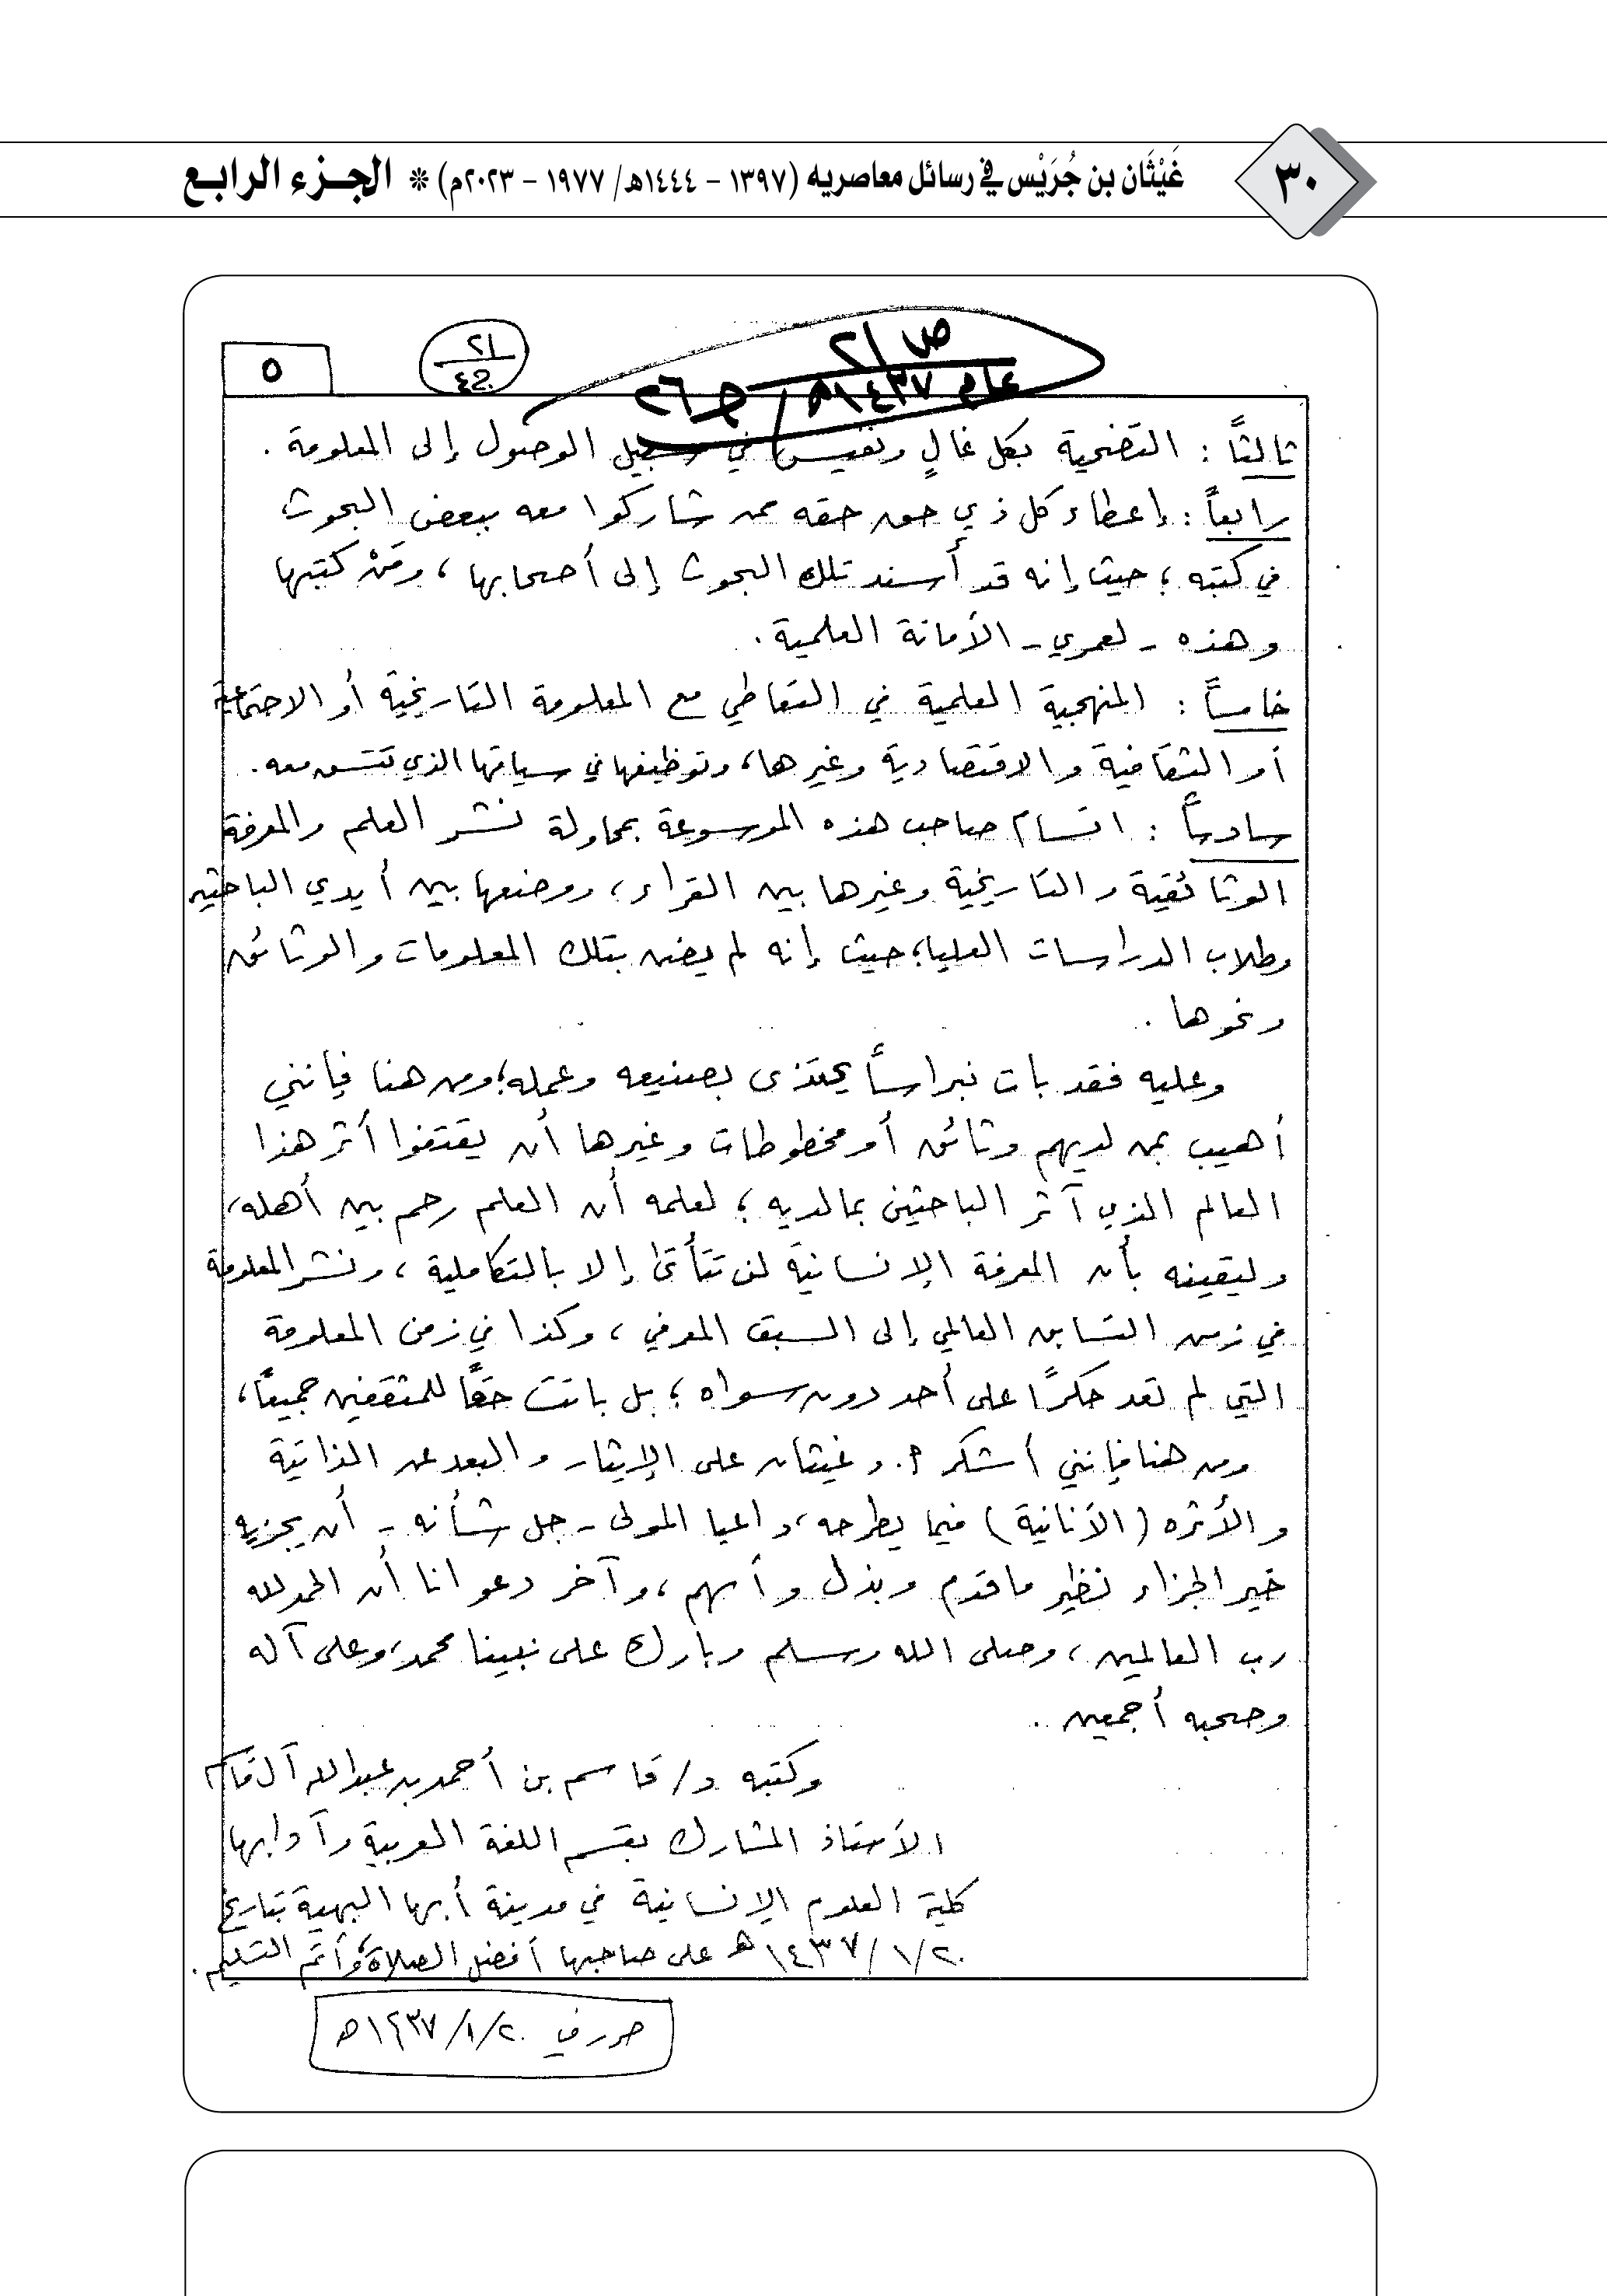 ٣٠
غَيْثَان بن جُرَيْس في رسائل معاصريه (١٣٩٧ - ١٤٤٤هـ/ ١٩٧٧ - ٢٠٢٣م) * الجزء الرابع
ص ٢١
عام ١٤٣٧هـ / ج ٢٦
٢١
ج٤
٥
ثالثاً : التضحية بكل غالٍ ونفيس في سبيل الوصول إلى المعلومة .
رابعاً : إعطاء كل ذي حق حقه ممن شاركوا معه ببعض البحوث
في كتبه ؛ حيث إنه قد أسند تلك البحوث إلى أصحابها ، ومَنْ كتبها
وهذه - لعمري - الأمانة العلمية .
خامساً : المنهجية العلمية في التعاطي مع المعلومة التاريخية أو الاجتماعية
أو الثقافية والاقتصادية وغيرها ، وتوظيفها في سياقها الذي تتسق معه .
سادساً : اتسام صاحب هذه الموسوعة بمحاولة نشر العلم والمعرفة
الوثائقية والتاريخية وغيرها بين القراء ، ووضعها بين أيدي الباحثين
وطلاب الدراسات العليا ؛ حيث إنه لم يضن بتلك المعلومات والوثائق
ونحوها .
وعليه فقد بات نبراساً يحتذى بصنيعه وعمله ؛ ومن هنا فإنني
أهيب بمن لديهم وثائق أو مخطوطات وغيرها أن يقتفوا أثر هذا
العالم الذي آثر الباحثين بما لديه ؛ لعلمه أن العلم رحم بين أهله ،
وليقينه بأن المعرفة الإنسانية لن تتأتى إلا بالتكاملية ، ونشر المعلومة
في زمن التسابق العالمي إلى السبق المعرفي ، وكذا في زمن المعلومة
التي لم تعد حكرًا على أحد دون سواه ؛ بل باتت حقاً للمثقفين جميعاً ،
ومن هنا فإنني أشكر أ.د غيثان على الإيثار والبعد عن الذاتية
والأثره ( الأنانية ) فيما يطرحه ، داعيا المولى - جل شأنه - أن يجزيه
خير الجزاء نظير ما قدم وبذل وأسهم ، وآخر دعوانا أن الحمد لله
رب العالمين ، وصلى الله وسلم وبارك على نبينا محمد ، وعلى آله
وصحبه أجمعين ..
وكتبه د/ قاسم بن أحمد بن عبدالله آل قاسم
الأستاذ المشارك بقسم اللغة العربية وآدابها
كلية العلوم الإنسانية في مدينة أبها البهية بتاريخ
٢٠/ ١/ ١٤٣٧هـ على صاحبها أفضل الصلاة وأتم التسليم .
حرر في ٢٠/ ١/ ١٤٣٧هـ